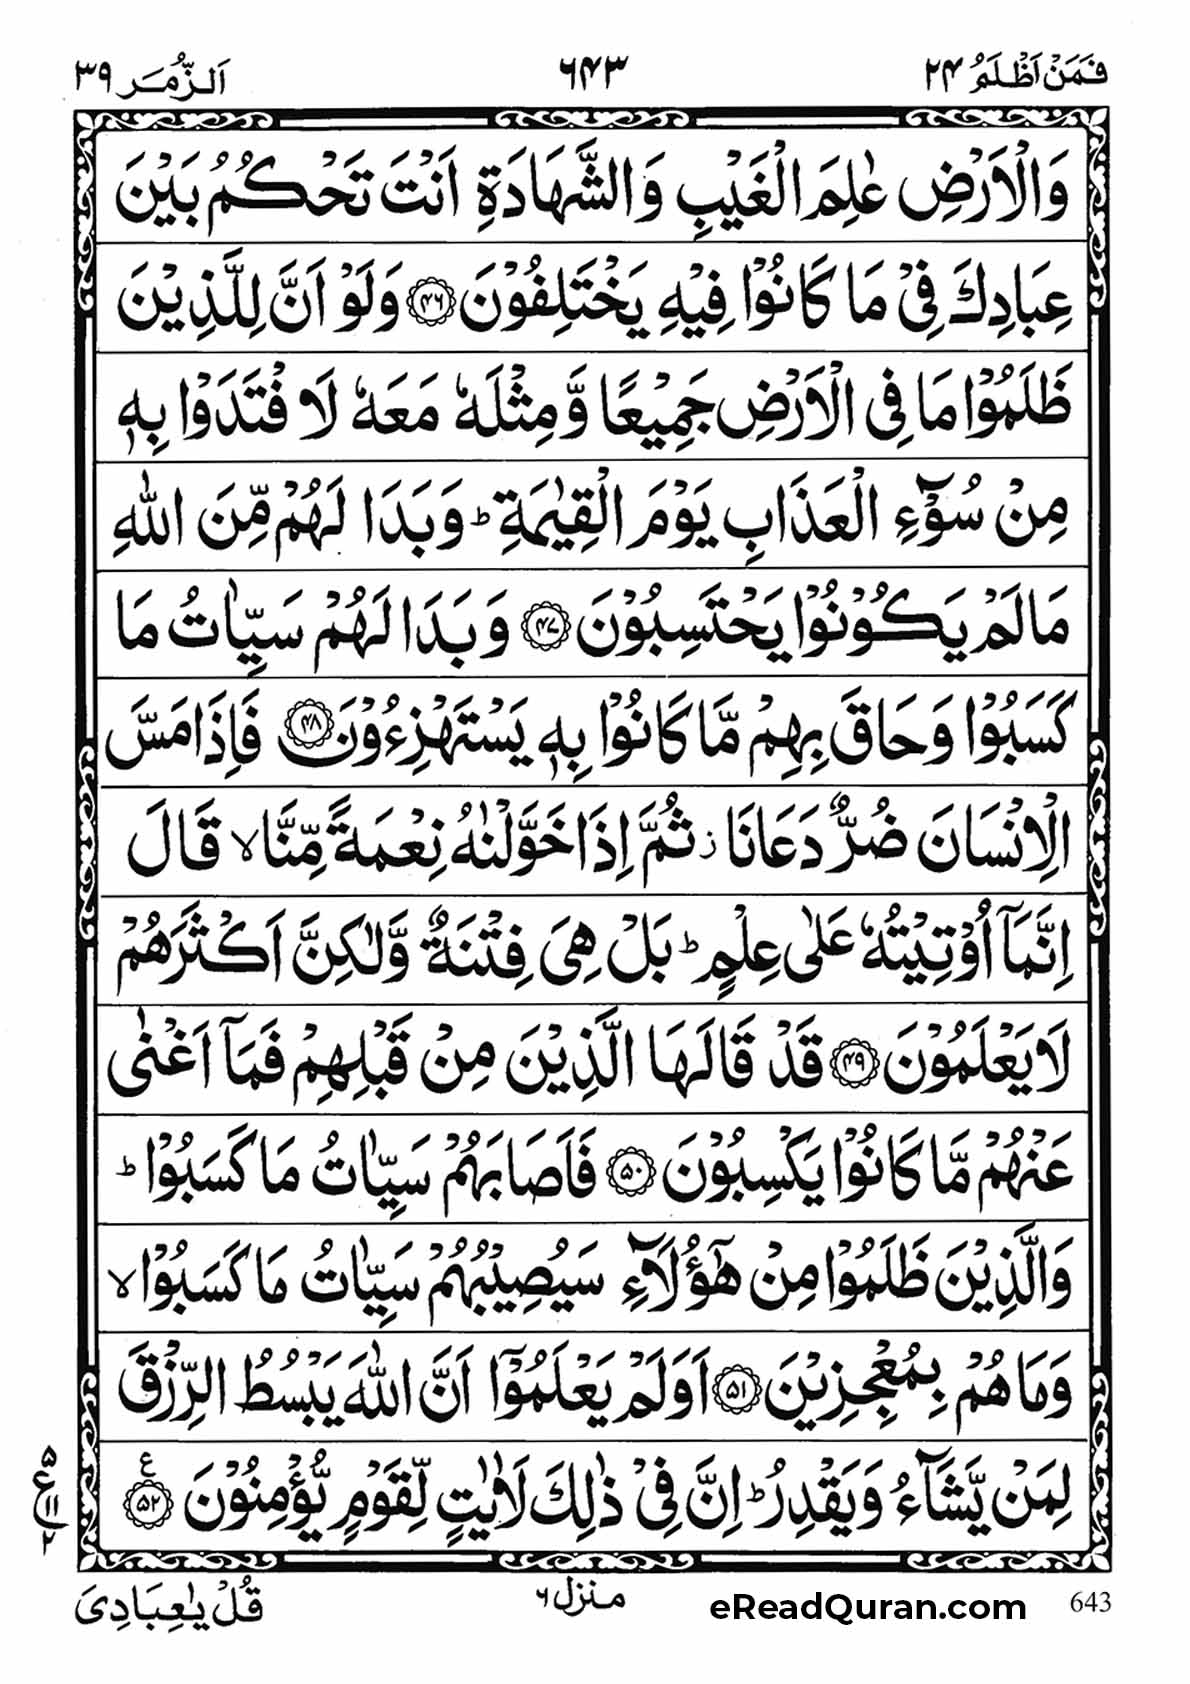 فَمَنْ اَظْلَمُ ۲۴ ۶۴۳ اَلزُّمَر ۳۹
وَالْاَرْضِ عٰلِمَ الْغَيْبِ وَالشَّهَادَةِ اَنْتَ تَحْكُمُ بَيْنَ
عِبَادِكَ فِيْ مَا كَانُوْا فِيْهِ يَخْتَلِفُوْنَ ﴿۴۶﴾ وَلَوْ اَنَّ لِلَّذِيْنَ
ظَلَمُوْا مَا فِي الْاَرْضِ جَمِيْعًا وَّمِثْلَهٗ مَعَهٗ لَا فْتَدَوْا بِهٖ
مِنْ سُوْٓءِ الْعَذَابِ يَوْمَ الْقِيٰمَةِ ؕ وَبَدَا لَهُمْ مِّنَ اللّٰهِ
مَا لَمْ يَكُوْنُوْا يَحْتَسِبُوْنَ ﴿۴۷﴾ وَبَدَا لَهُمْ سَيِّاٰتُ مَا
كَسَبُوْا وَحَاقَ بِهِمْ مَّا كَانُوْا بِهٖ يَسْتَهْزِءُوْنَ ﴿۴۸﴾ فَاِذَا مَسَّ
الْاِنْسَانَ ضُرٌّ دَعَانَا ز ثُمَّ اِذَا خَوَّلْنٰهُ نِعْمَةً مِّنَّا ۙ قَالَ
اِنَّمَاۤ اُوْتِيْتُهٗ عَلٰى عِلْمٍ ؕ بَلْ هِيَ فِتْنَةٌ وَّلٰكِنَّ اَكْثَرَهُمْ
لَا يَعْلَمُوْنَ ﴿۴۹﴾ قَدْ قَالَهَا الَّذِيْنَ مِنْ قَبْلِهِمْ فَمَاۤ اَغْنٰى
عَنْهُمْ مَّا كَانُوْا يَكْسِبُوْنَ ﴿۵۰﴾ فَاَصَابَهُمْ سَيِّاٰتُ مَا كَسَبُوْا ؕ
وَالَّذِيْنَ ظَلَمُوْا مِنْ هٰٓؤُلَآءِ سَيُصِيْبُهُمْ سَيِّاٰتُ مَا كَسَبُوْا ۙ
وَمَا هُمْ بِمُعْجِزِيْنَ ﴿۵۱﴾ اَوَلَمْ يَعْلَمُوْۤا اَنَّ اللّٰهَ يَبْسُطُ الرِّزْقَ
لِمَنْ يَّشَآءُ وَيَقْدِرُ ؕ اِنَّ فِيْ ذٰلِكَ لَاٰيٰتٍ لِّقَوْمٍ يُّؤْمِنُوْنَ ﴿۵۲﴾ ع
۵
ع ۱۱
۲
قُلْ يٰعِبَادِيَ منزل ۶ eReadQuran.com 643